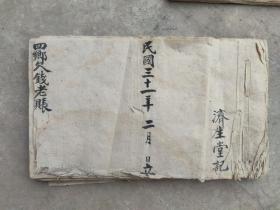 濟生堂記
民國三十一年 二月 日立
四鄉欠錢老賬